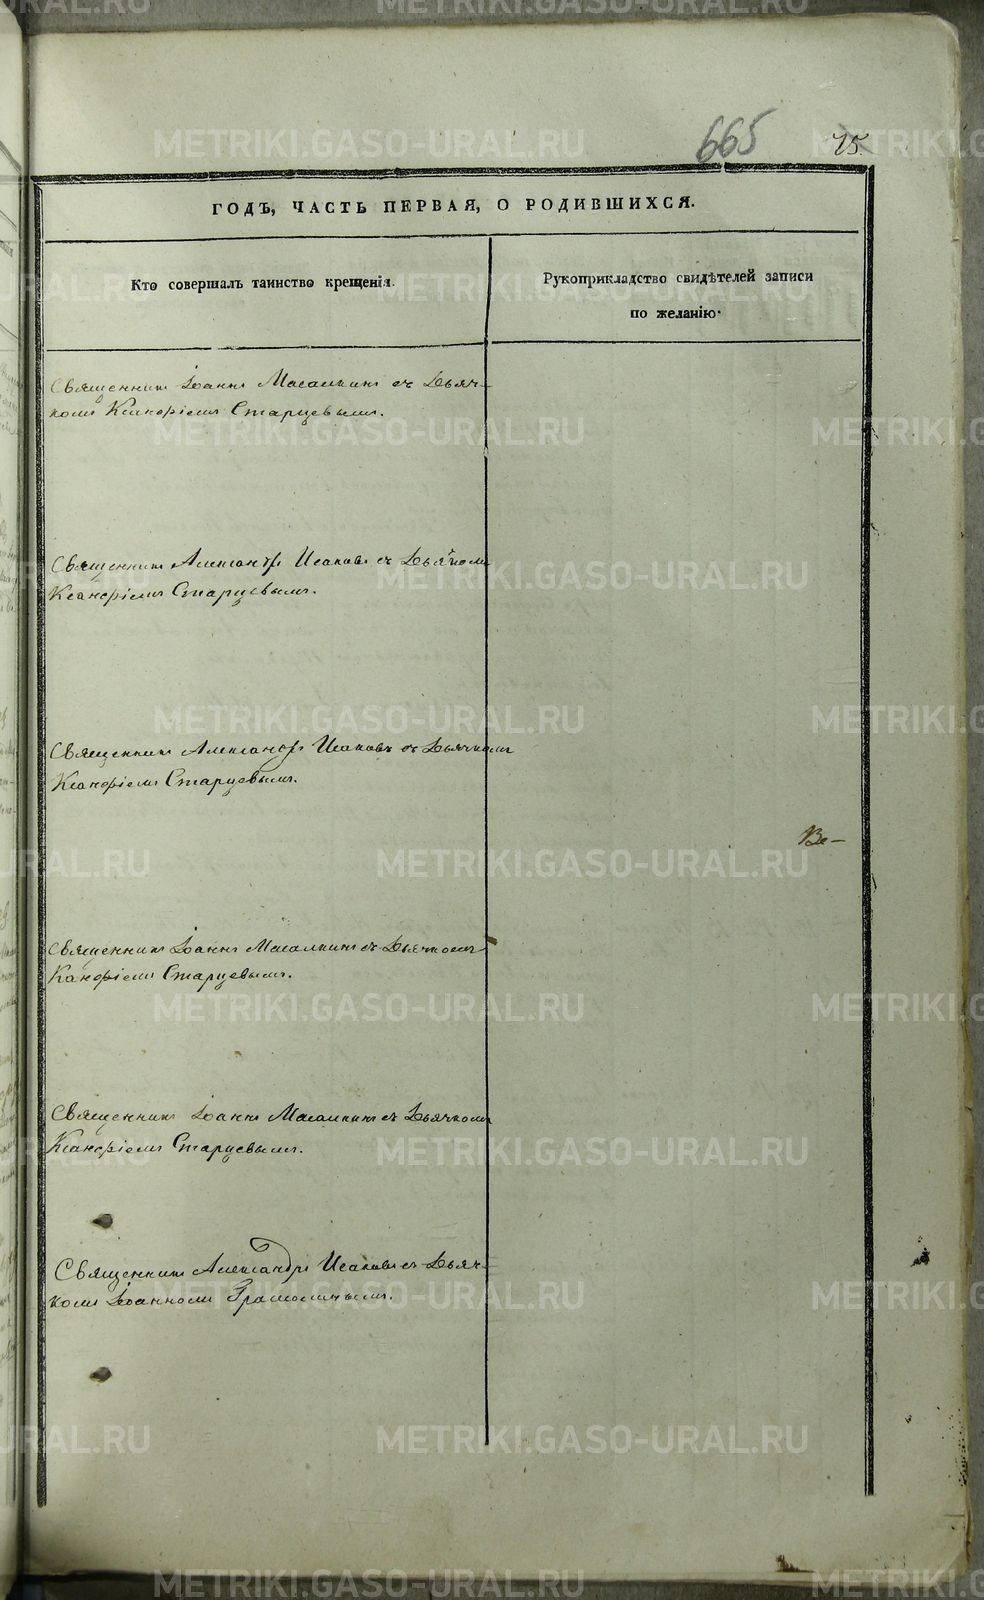 665
75.
ГОДЪ, ЧАСТЬ ПЕРВАЯ, О РОДИВШИХСЯ.
Кто совершалъ таинство крещенія.
Рукоприкладство свидѣтелей записи
по желанію.
Священникъ Іоаннъ Масалкинъ съ Дьяч-
комъ Ксанфіемъ Старцевымъ.
Священникъ Александръ Исаковъ съ Дьячкомъ
Ксанфіемъ Старцевымъ.
Священникъ Александръ Исаковъ съ Дьячкомъ
Ксанфіемъ Старцевымъ.
Ве-
Священникъ Іоаннъ Масалкинъ съ Дьячкомъ
Канфіемъ Старцевымъ.
Священникъ Іоаннъ Масалкинъ съ Дьячкомъ
Ксанфіемъ Старцевымъ.
Священникъ Александръ Исаковъ съ Дьяч-
комъ Іоанномъ
METRIKI.GASO-URAL.RU